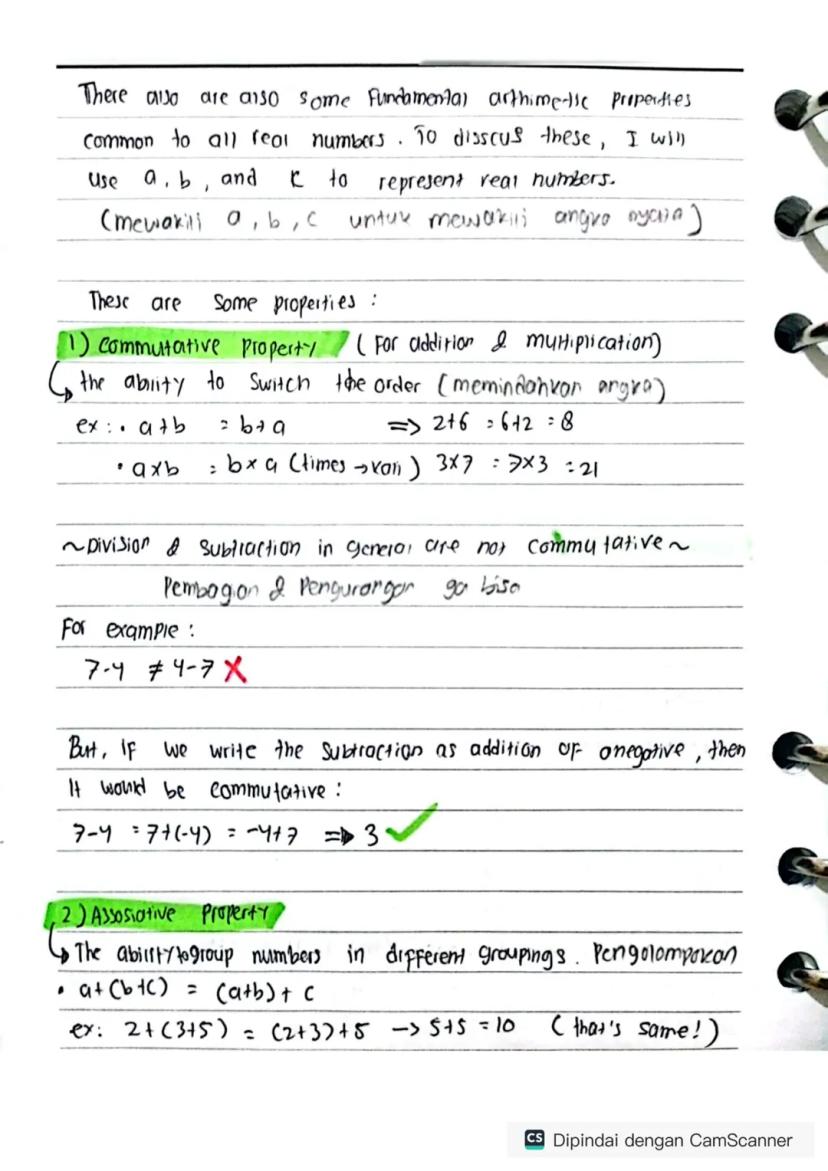 There also are also some Fundamental arthimetic properties
common to all real numbers. To disscus these, I will
use a, b, and c to represent real numbers.
(mewakili a, b, c untuk mewakili angka nyata)
These are some properties :
1) Commutative Property (For addition & multiplication)
the ability to switch the order (memindahkan angka)
ex : • a+b = b+a => 2+6 = 6+2 = 8
• axb = bxa (times → kali) 3x7 = 7x3 = 21
~Division & Subtraction in general are not commutative~
Pembagian & Pengurangan ga bisa
For example :
7-4 ≠ 4-7 X
But, if we write the subtraction as addition of a negative, then
It would be commutative :
7-4 = 7+(-4) = -4+7 => 3 ✓
2) Assosiative Property
The ability to group numbers in different groupings. Pengolompokan
• a+(b+c) = (a+b)+c
ex: 2+(3+5) = (2+3)+5 -> 5+5 = 10 (that's same!)
CS Dipindai dengan CamScanner